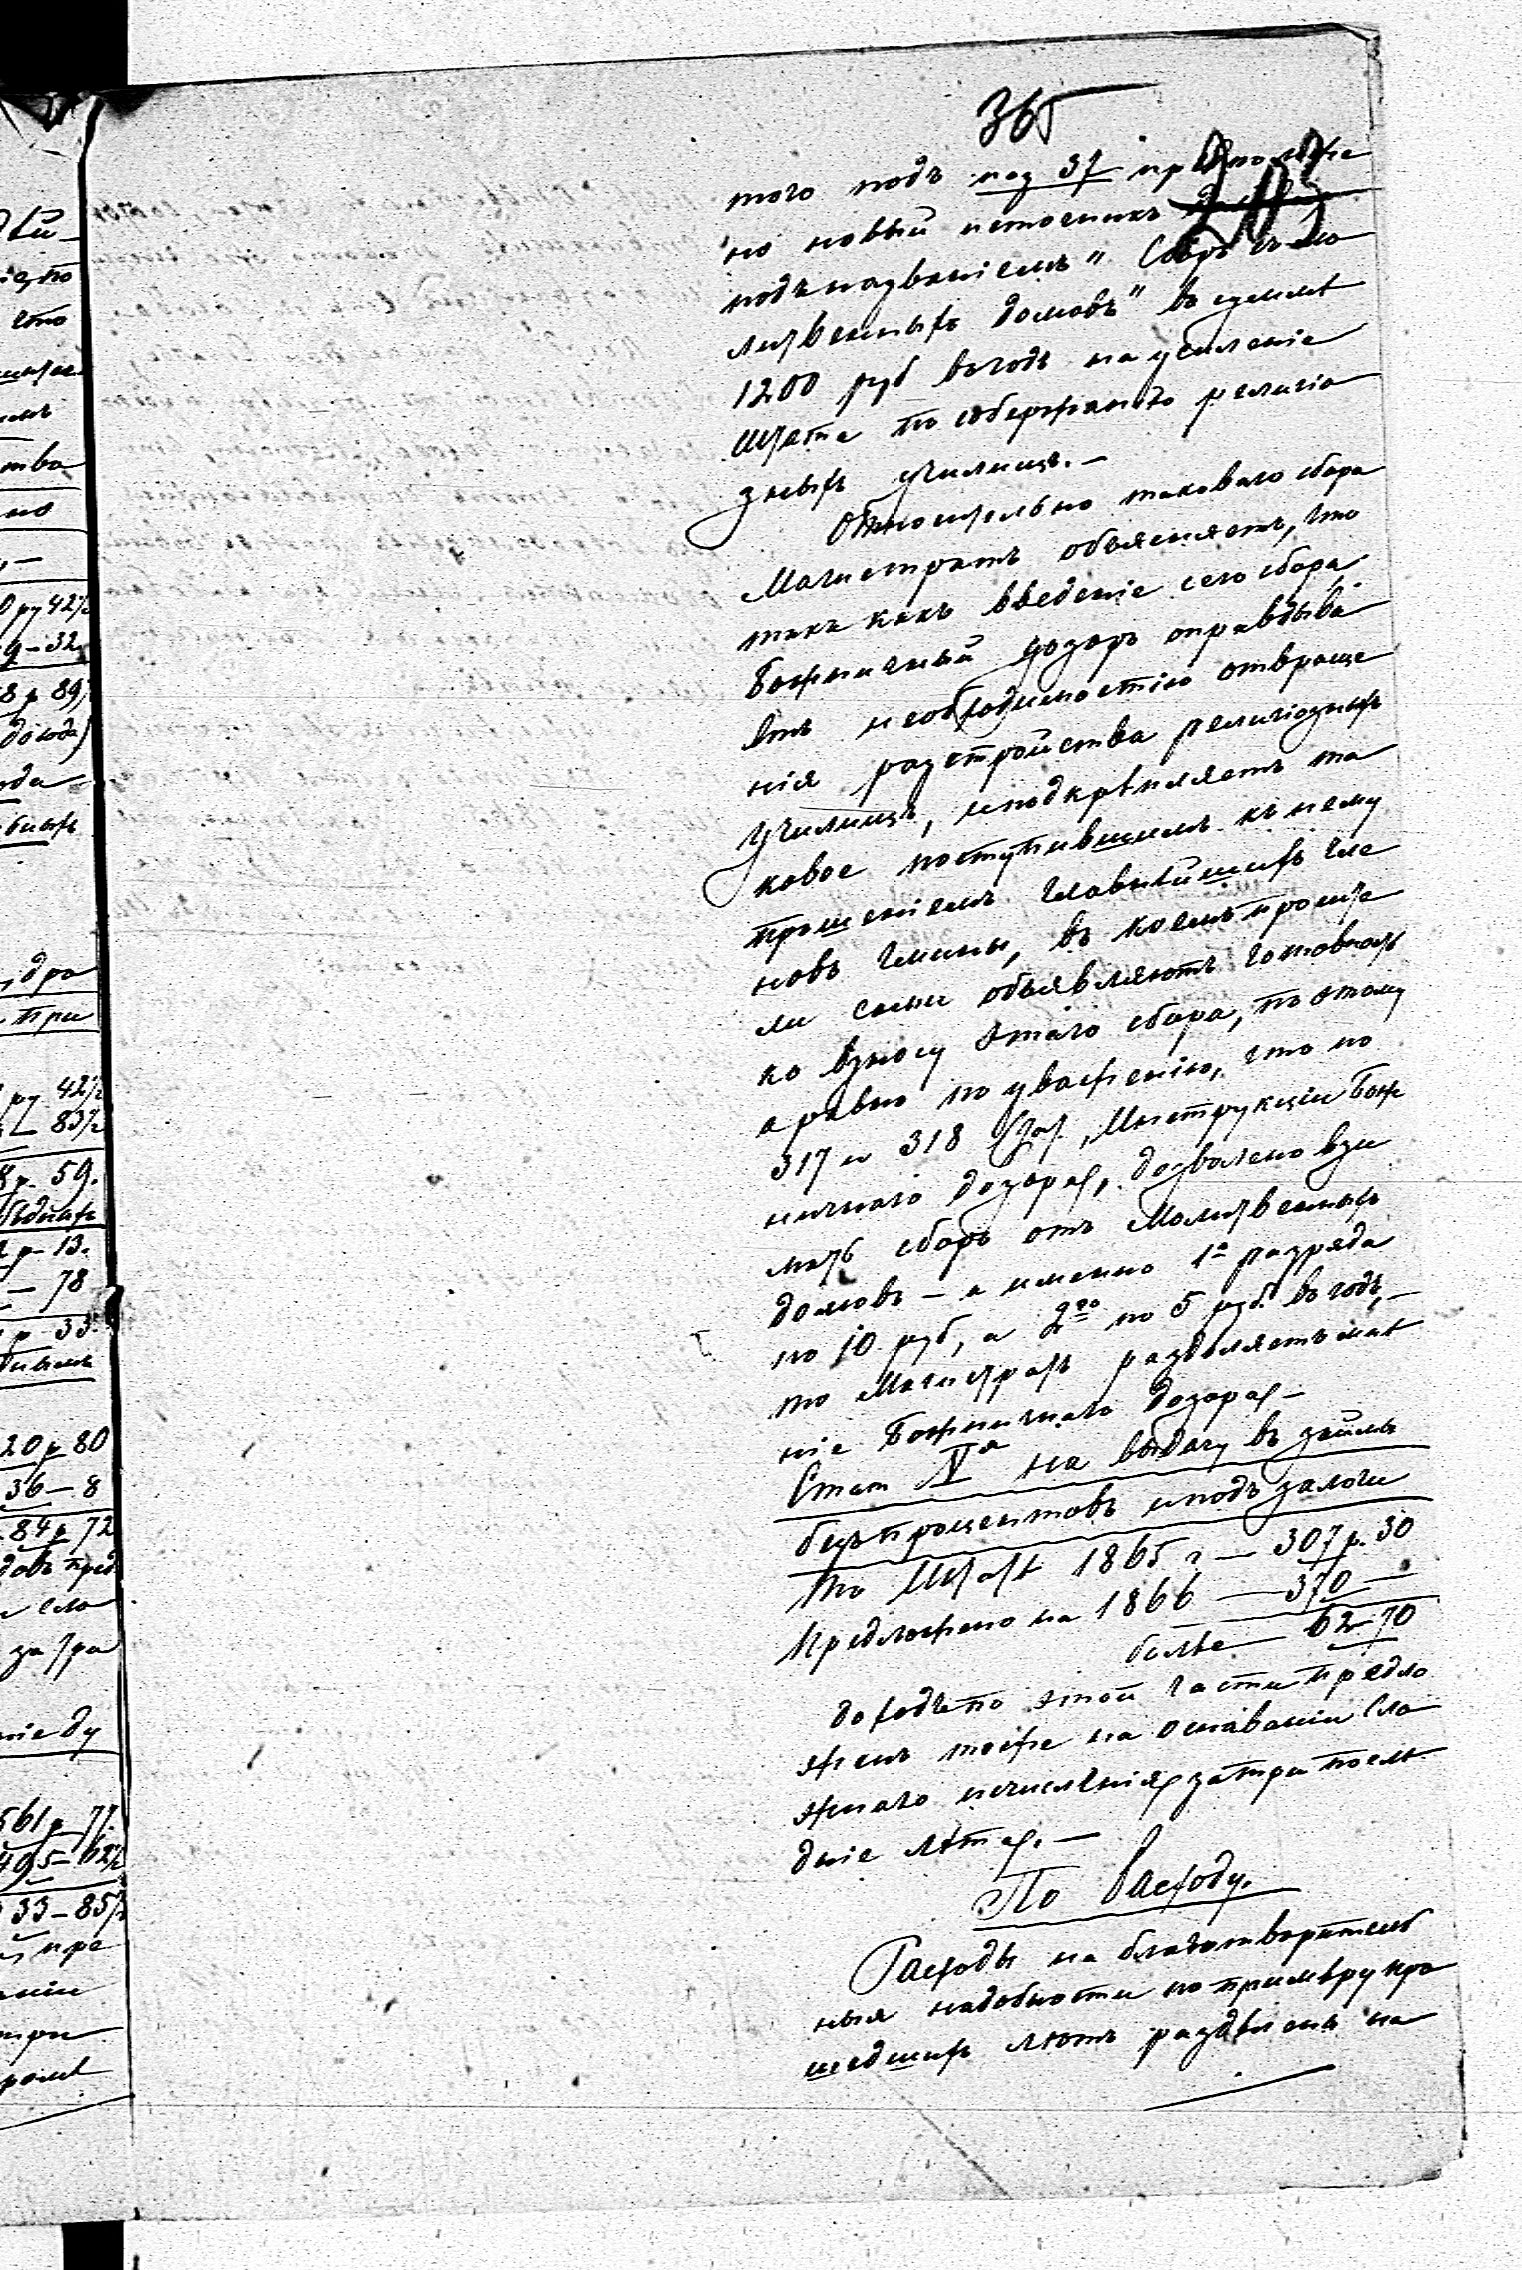 365
203
того подъ поз 37 предложе
но новый источникъ
подъ названіемъ „Сборъ съ мо
литвенныхъ домовъ" въ суммѣ
1200 руб въ годъ на усиленіе
штата по содержанію религіо
зныхъ училищъ.—
Относительно таковаго сбора
Магистратъ объясняетъ, что
такъ какъ введеніе сего сбора
Божничный дозоръ оправдыва
етъ необходимостію отвраще
нія разстройства религіозныхъ
училищъ, и подкрѣпляетъ та
ковое поступившимъ къ нему
прошеніемъ главнѣйшихъ чле
новъ гмины, въ коемъ просите
ли сами объявляютъ готовность
ко взносу этаго сбора, по этому
а равно по уваженію, что по
317 и 318 Инструкціи Бож
ничнаго дозора, дозволено взи
мать сборъ отъ Молитвенныхъ
домовъ — а именно 1го разряда
по 10 руб, а 2го по 5 руб. въ годъ,—
то Магистратъ раздѣляетъ мнѣ
ніе Божничнаго Дозора—
Стат. V я на выдачу въ займъ
безъ процентовъ и подъ залоги
По Штату 1865 г — 307 р. 30
Предложено на 1866 — 370 —
болѣе — 62 – 70
доходъ по этой части предло
женъ тоже на основаніи сло
жнаго исчисленія за три послѣ
дніе лѣта.—
По Расходу.
Расходы на благотворительн
ныя надобности по примѣру про
шедшихъ лѣтъ раздѣлены на
дѣй
что
тва
но
0 ру 42½
9 – 32
8 р 89½
дохода)
ода
дра
при
ру 42½
— 83½
8 р. 59.
2 р – 13.
— 78
р – 33.
20 р 80
36 – 8
84 р 72
довъ пред
сло
за тра
ніе ду
561 р 77.
495 – 62½
33 – 85½
пре
ніи
три